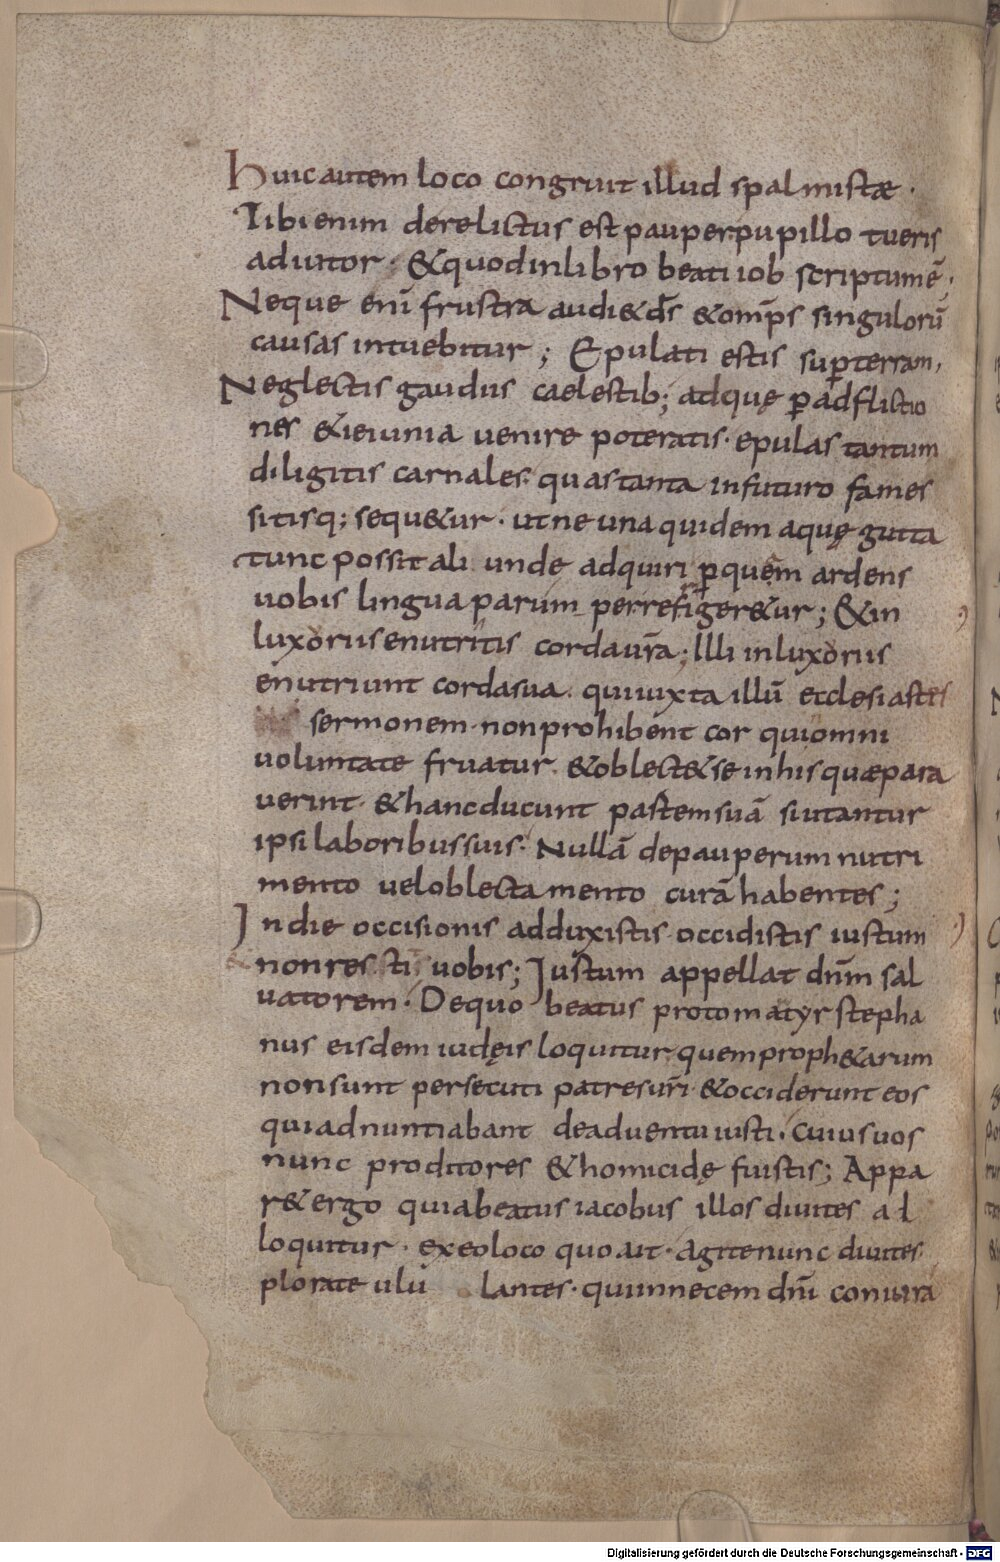 Huic autem loco congruit illud spalmistæ ·
Tibi enim derelictus est pauper pupillo tu eris
adiutor · & quod in libro beati iob scriptum ē ·
Neque enī frustra audi& d̄s & omp̄s singulorū
causas intuebitur ; Epulati estis sup̲ terram,
Neglectis gaudiis caelestib; adquę p̲ adflictio
nes & ieiunia uenire poteratis · epulas tantum
diligitis carnales · quas tanta in futuro fames
sitisq; sequ&ur · ut ne una quidem aquę gutta
tunc possit ali unde adquiri p̲ quem ardens
uobis lingua parum perrefiger&ur ; & in
luxoriis enutritis corda ūra ; Illi in luxoriis
enutriunt corda sua · qui iuxta illū ecclesiastes
sermonem · non prohibent cor qui omni
voluntate fruatur · & oblect& se in his quæ para
uerint · & hanc ducunt pastem suā si utantur
ipsi laboribus suis · Nullā de pauperum nutri
mento uel oblectamento curā habentes ;
In die occisionis adduxistis · occidistis iustum
non res ti uobis ; Iustum appellat dn̄m sal
uatorem · De quo beatus protomatyr stepha
nus eisdem iudęis loquitur · quem proph&arum
non sunt persecuti patres ur̄i · & occiderunt eos
qui adnuntiabant de aduentu iusti · cuius uos
nunc proditores & homicidę fuistis ; Appa
r& ergo quia beatus iacobus illos diuites al
loquitur · ex eo loco quo ait · agite nunc diuites
plorate ulu lantes · qui in necem dn̄i coniura
Digitalisierung gefördert durch die Deutsche Forschungsgemeinschaft - DFG